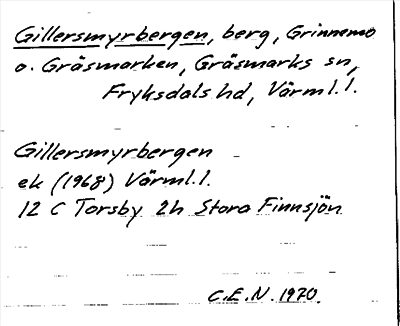 Gillersmyrbergen, berg, Grinnemo
o. Gräsmarken, Gräsmarks sn,
Fryksdals hd, Värml. l.
Gillersmyrbergen
ek (1968) Värml. l.
12 C Torsby 2h Stora Finnsjön
C.E.N. 1970.